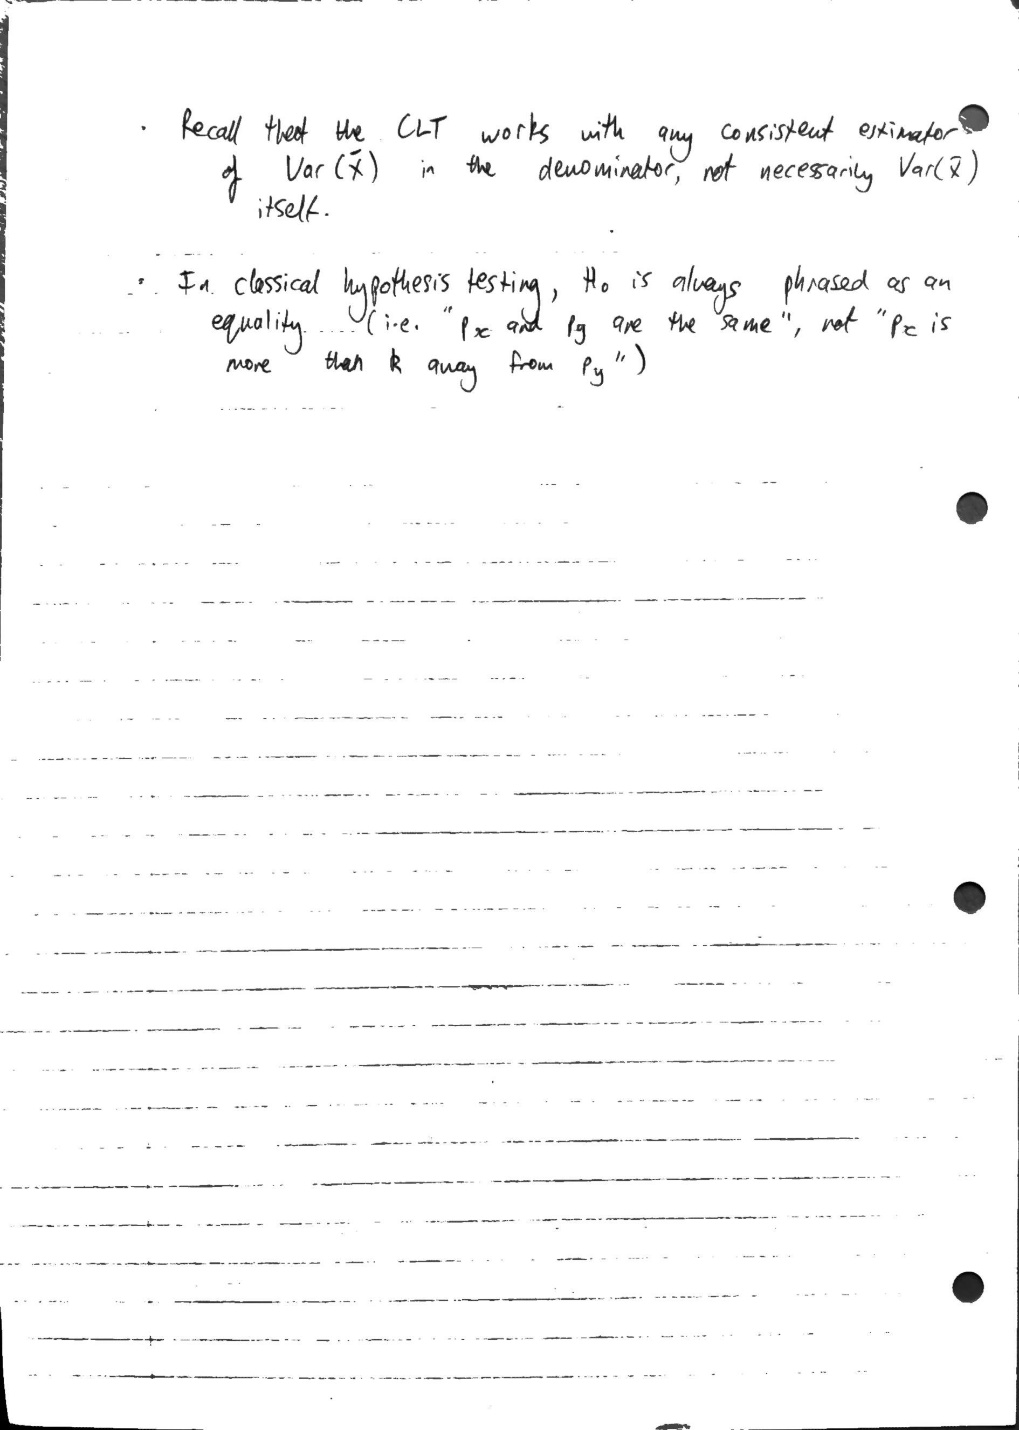 · Recall that the CLT works with any consistent estimator
of Var(x̄) in the denominator, not necessarily Var(x̄)
itself.
· In classical hypothesis testing, H₀ is always phrased as an
equality (i.e. "Px and Py are the same", not "Px is
more than k away from Py")